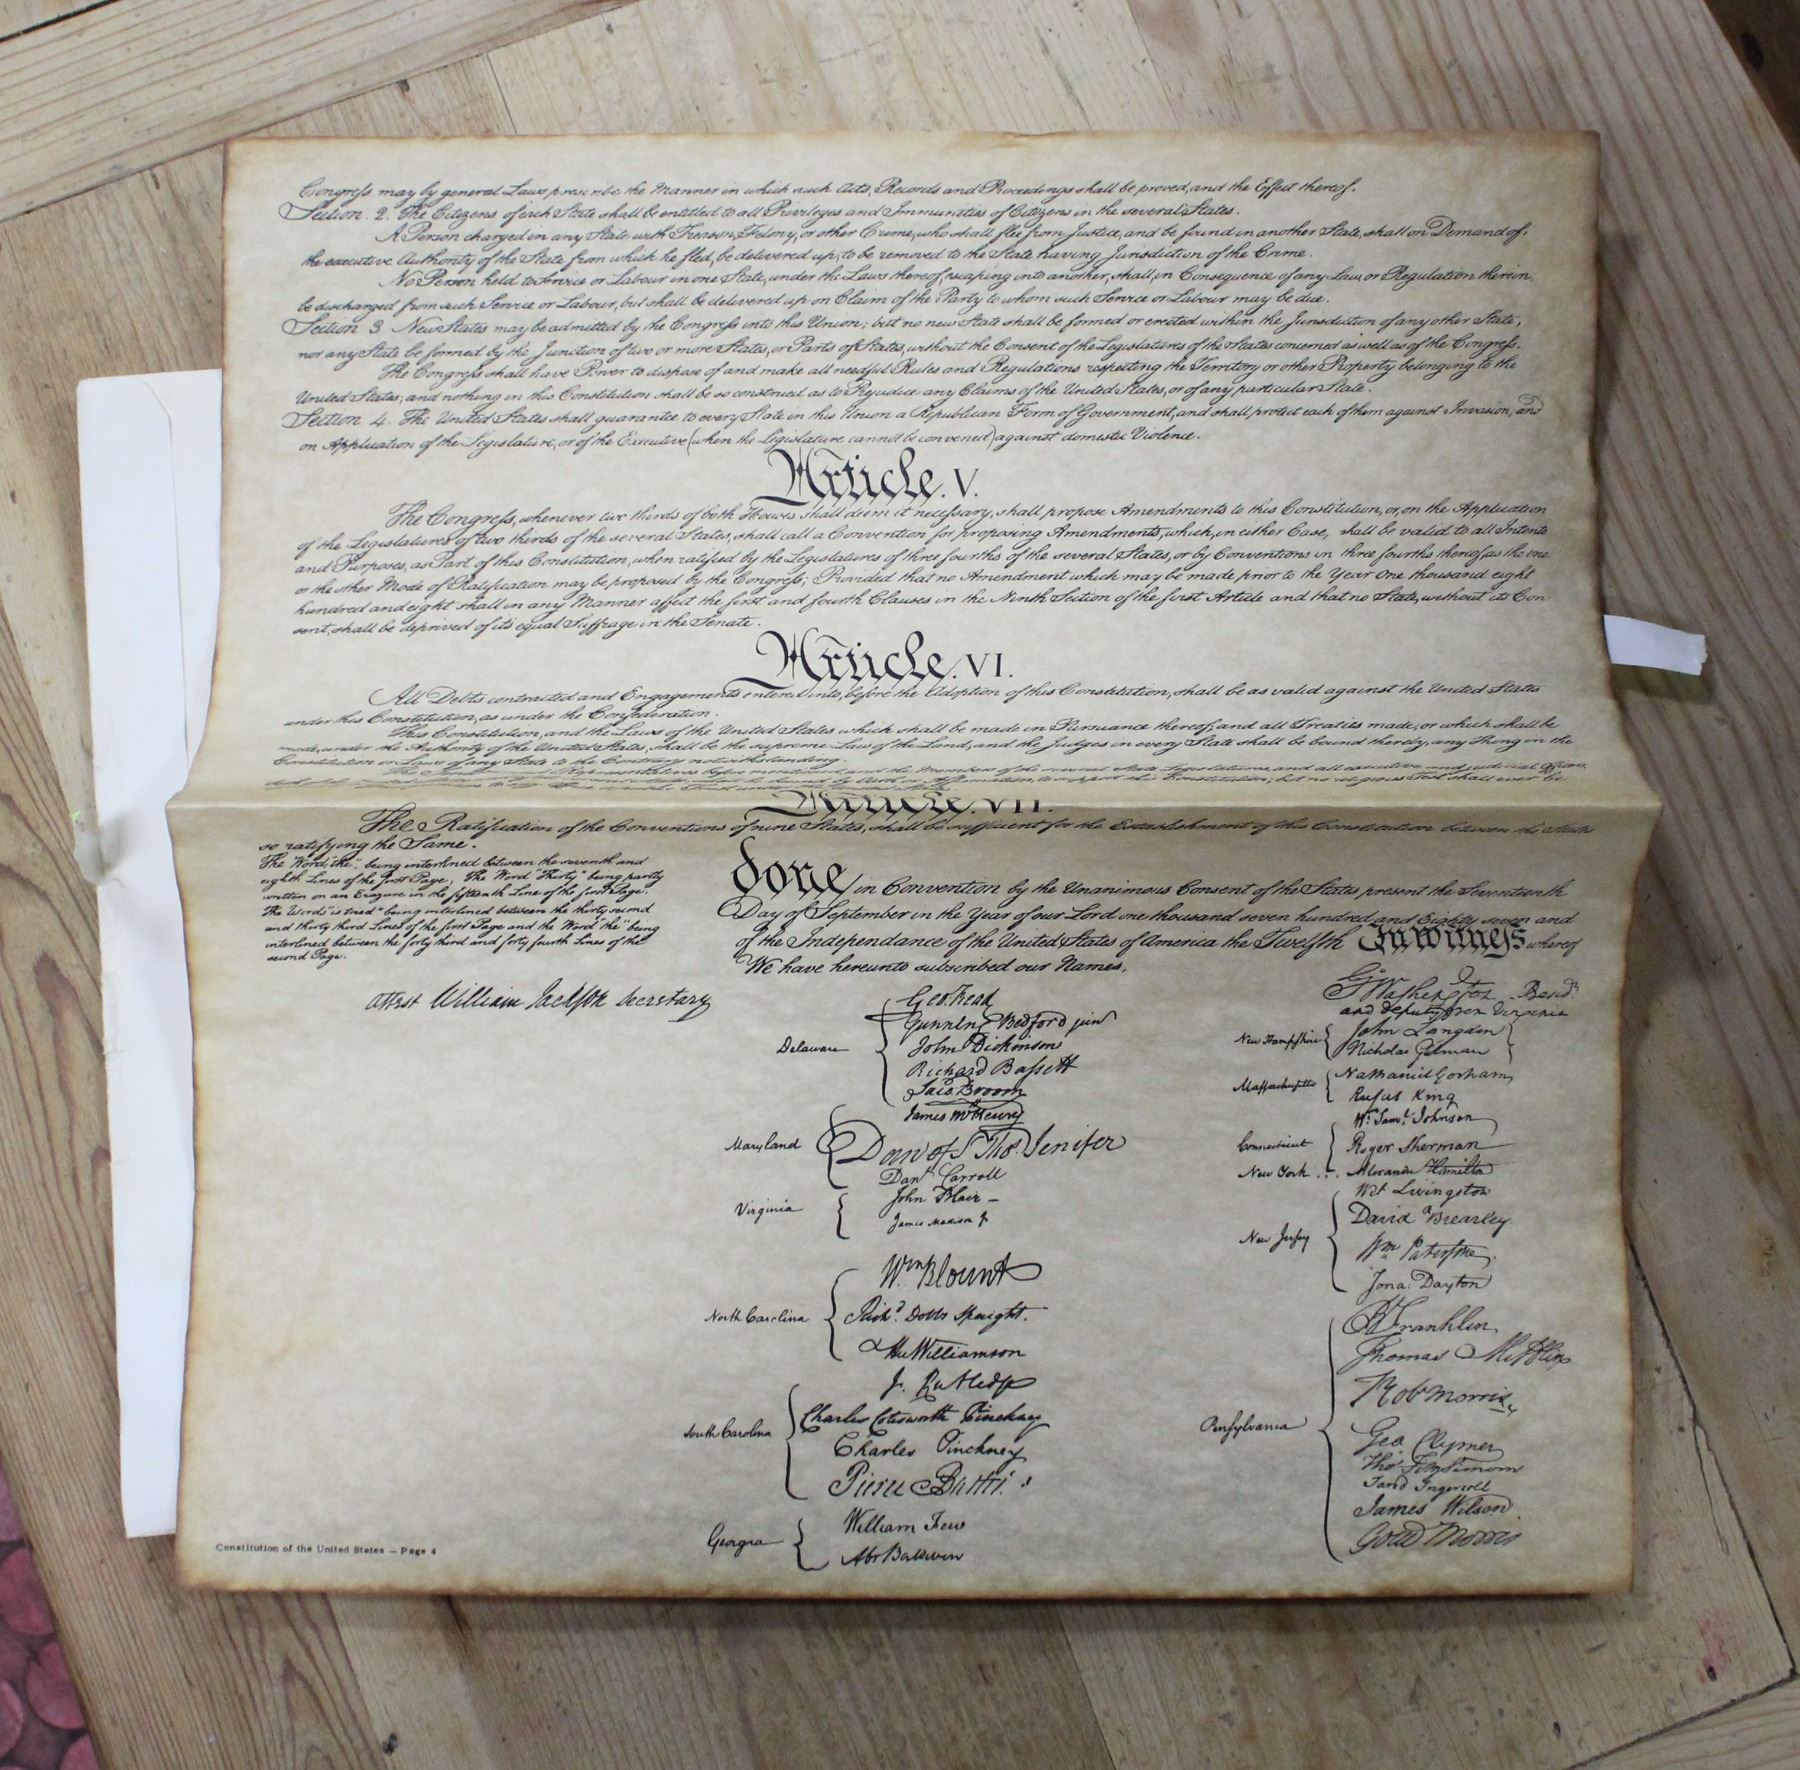 Congress may by general Laws prescribe the Manner in which such Acts, Records and Proceedings shall be proved, and the Effect thereof.
Section. 2. The Citizens of each State shall be entitled to all Privileges and Immunities of Citizens in the several States.
A Person charged in any State with Treason, Felony, or other Crime, who shall flee from Justice, and be found in another State, shall on Demand of
the executive Authority of the State from which he fled, be delivered up, to be removed to the State having Jurisdiction of the Crime.
No Person held to Service or Labour in one State, under the Laws thereof, escaping into another, shall, in Consequence of any Law or Regulation therein,
be discharged from such Service or Labour, but shall be delivered up on Claim of the Party to whom such Service or Labour may be due.
Section 3 New States may be admitted by the Congress into this Union; but no new State shall be formed or erected within the Jurisdiction of any other State,
nor any State be formed by the Junction of two or more States, or Parts of States, without the Consent of the Legislatures of the States concerned as well as of the Congress.
The Congress shall have Power to dispose of and make all needful Rules and Regulations respecting the Territory or other Property belonging to the
United States; and nothing in this Constitution shall be so construed as to Prejudice any Claims of the United States, or of any particular State.
Section 4. The United States shall guarantee to every State in this Union a Republican Form of Government, and shall protect each of them against Invasion, and
on Application of the Legislature, or of the Executive (when the Legislature cannot be convened) against domestic Violence.
Article. V.
The Congress, whenever two thirds of both Houses shall deem it necessary, shall propose Amendments to this Constitution, or, on the Application
of the Legislatures of two thirds of the several States, shall call a Convention for proposing Amendments, which, in either Case, shall be valid to all Intents
and Purposes, as Part of this Constitution, when ratified by the Legislatures of three fourths of the several States, or by Conventions in three fourths thereof, as the one
or the other Mode of Ratification may be proposed by the Congress; Provided that no Amendment which may be made prior to the Year One thousand eight
hundred and eight shall in any Manner affect the first and fourth Clauses in the Ninth Section of the first Article and that no State, without its Con
sent, shall be deprived of its equal Suffrage in the Senate.
Article. VI.
All Debts contracted and Engagements entered into, before the Adoption of this Constitution, shall be as valid against the United States
under this Constitution, as under the Confederation.
This Constitution, and the Laws of the United States which shall be made in Pursuance thereof; and all Treaties made, or which shall be
made, under the Authority of the United States, shall be the supreme Law of the Land; and the Judges in every State shall be bound thereby, any Thing in the
Constitution or Laws of any State to the Contrary notwithstanding.
The Senators and Representatives before mentioned, and the Members of the several State Legislatures, and all executive and judicial Officers,
to support this Constitution; but no religious Test shall ever be
Article. VII.
The Ratification of the Conventions of nine States, shall be sufficient for the Establishment of this Constitution between the States
so ratifying the Same.
The Word "the", being interlined between the seventh and
eighth Lines of the first Page, The Word "Thirty" being partly
written on an Erazure in the fifteenth Line of the first Page,
The Words "is tried" being interlined between the thirty second
and thirty third Lines of the first Page and the Word "the" being
interlined between the forty third and forty fourth Lines of the
second Page.
Attest William Jackson Secretary
done in Convention by the Unanimous Consent of the States present the Seventeenth
Day of September in the Year of our Lord one thousand seven hundred and Eighty seven and
of the Independance of the United States of America the Twelfth In witness whereof
We have hereunto subscribed our Names,
Go Washington Presidt
and deputy from Virginia
Delaware
Geo: Read
Gunning Bedford jun
John Dickinson
Richard Bassett
Jaco: Broom
Maryland
James McHenry
Dan of St Thos. Jenifer
Danl Carroll
Virginia
John Blair –
James Madison Jr
North Carolina
Wm Blount
Richd. Dobbs Spaight.
Hu Williamson
South Carolina
J. Rutledge
Charles Cotesworth Pinckney
Charles Pinckney
Pierce Butler.
Georgia
William Few
Abr Baldwin
New Hampshire
John Langdon
Nicholas Gilman
Massachusetts
Nathaniel Gorham
Rufus King
Connecticut
Wm. Saml. Johnson
Roger Sherman
New York . . . Alexander Hamilton
New Jersey
Wil Livingston
David Brearley
Wm Paterson.
Jona: Dayton
Pensylvania
B Franklin
Thomas Mifflin
Robt Morris
Geo. Clymer
Thos FitzSimons
Jared Ingersoll
James Wilson.
Gouv Morris
Constitution of the United States — Page 4